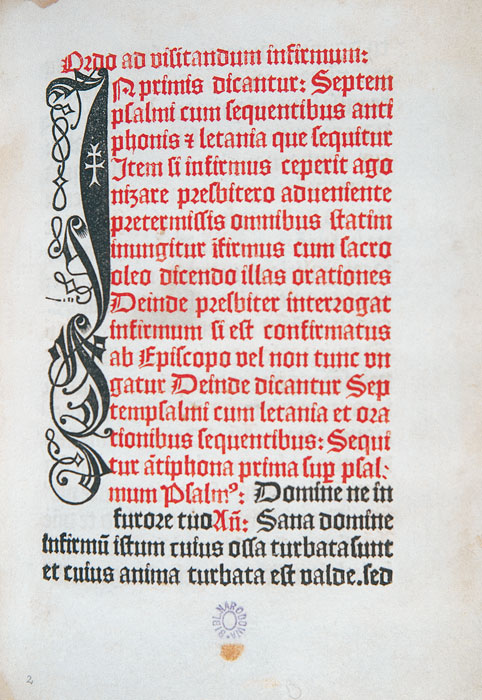 Ordo ad visitandum infirmum:
IN primis dicantur: Septem
psalmi cum sequentibus anti
phonis ⁊ letania que sequitur
Item si infirmus ceperit ago
nizare presbitero adueniente
pretermissis omnibus statim
inungitur ĩfirmus cum sacro
oleo dicendo illas orationes
Deinde presbiter interrogat
infirmum si est confirmatus
ab Episcopo vel non tunc vn
gatur Deinde dicantur Sep
tempsalmi cum letania et ora
tionibus sequentibus: Sequi
tur ãtiphona prima sup̲ psal-
mum Psalmꝰ: Domine ne in
furore tuo Añ: Sana domine
infirmũ istum cuius ossa turbata sunt
et cuius anima turbata est valde. sed
BIBL. NARODOWA
2